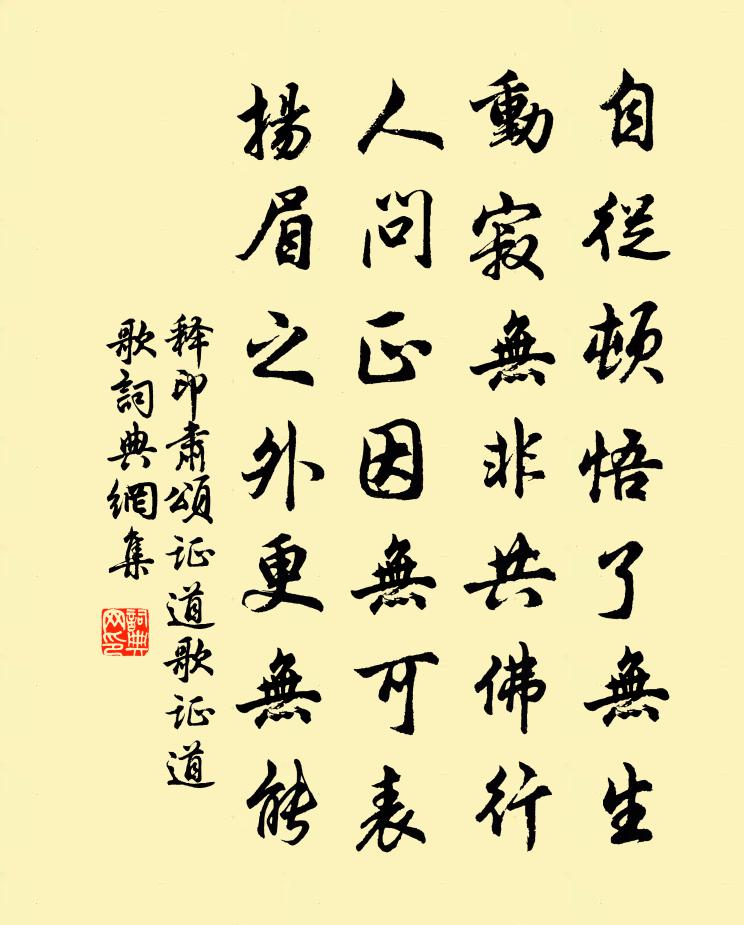 自從頓悟了無生
動寂無非共佛行
人问正因無可表
揚眉之外更無能
释印肃頌证道歌证道
歌詞典網集
詞典网印